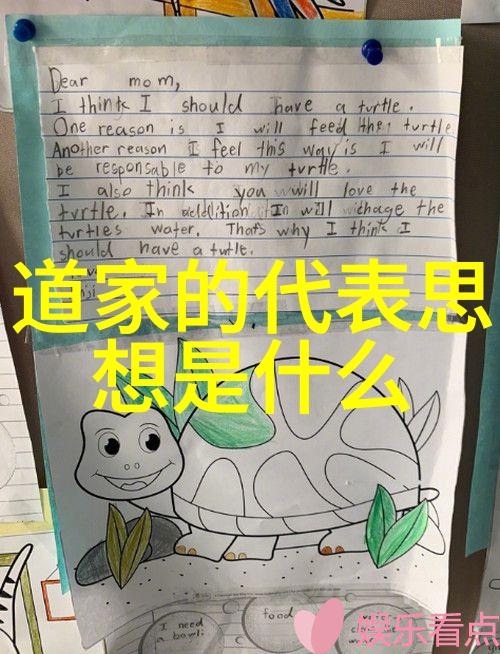 Dear mom,
I think I should have a turtle.
One reason is I will feed the turtle.
Another reason I feel this way is I will
be responsable to my turtle.
I also think you will love the
turtle. In addition I will chage the
turtles water. That's why I think I
should have a turtle.
道家的代表思
想是什么
I need
a bowl
food
娱乐看点